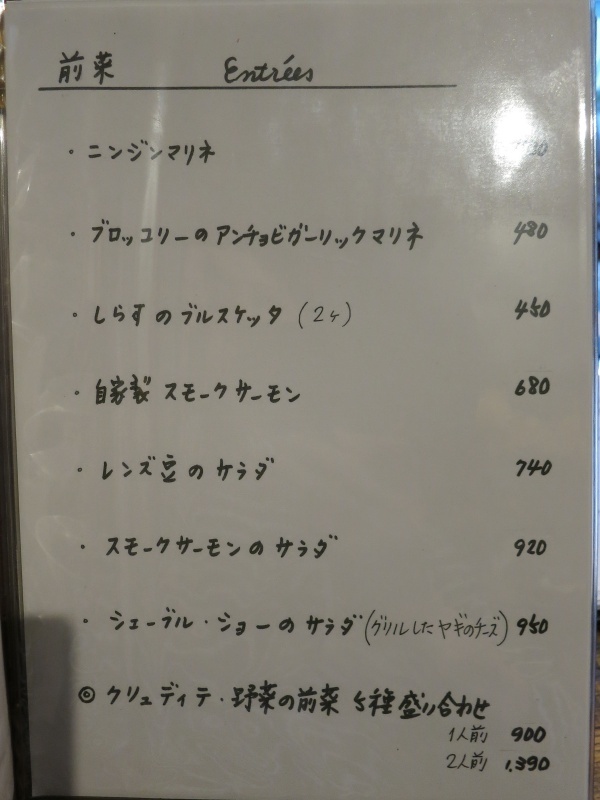 前菜 Entrées
・ニンジンマリネ
・ブロッコリーのアンチョビガーリックマリネ 480
・しらすのブルスケッタ (2ヶ) 450
・自家製 スモークサーモン 680
・レンズ豆のサラダ 740
・スモークサーモンのサラダ 920
・シェーブル・ショーのサラダ(グリルしたヤギのチーズ) 950
◎ クリュディテ・野菜の前菜 5種盛り合わせ
1人前 900
2人前 1,390